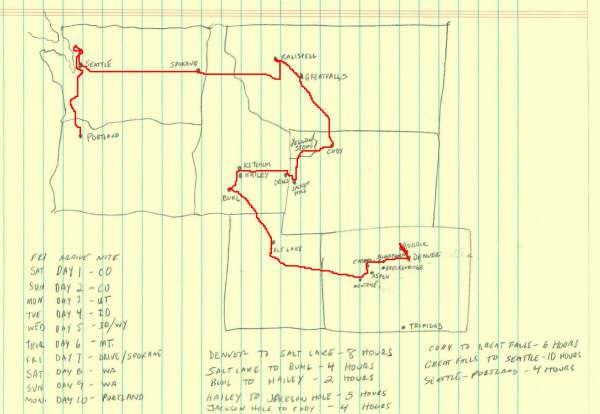 KALISPELL
SEATTLE
SPOKANE
GREAT FALLS
PORTLAND
YELLOW
STONE
CODY
KETCHUM
HAILEY
DRIGGS
JACKSON
HOLE
BUHL
SALT LAKE
BOULDER
DENVER
BRECKENRIDGE
ASPEN
MONTROSE
TRINIDAD
FRI ARRIVE NITE
SAT DAY 1 - CO
SUN DAY 2 - CO
MON DAY 3 - UT
TUE DAY 4 - ID
WED DAY 5 - ID/WY
THUR DAY 6 - MT.
FRI DAY 7 - DRIVE/SPOKANE
SAT DAY 8 - WA
SUN DAY 9 - WA
MON DAY 10 - PORTLAND
DENVER TO SALT LAKE - 8 HOURS
SALT LAKE TO BUHL - 4 HOURS
BUHL TO HAILEY - 2 HOURS
HAILEY TO JACKSON HOLE - 5 HOURS
JACKSON HOLE TO CODY - 4 HOURS
CODY TO GREAT FALLS - 6 HOURS
GREAT FALLS TO SEATTLE - 10 HOURS
SEATTLE - PORTLAND - 4 HOURS